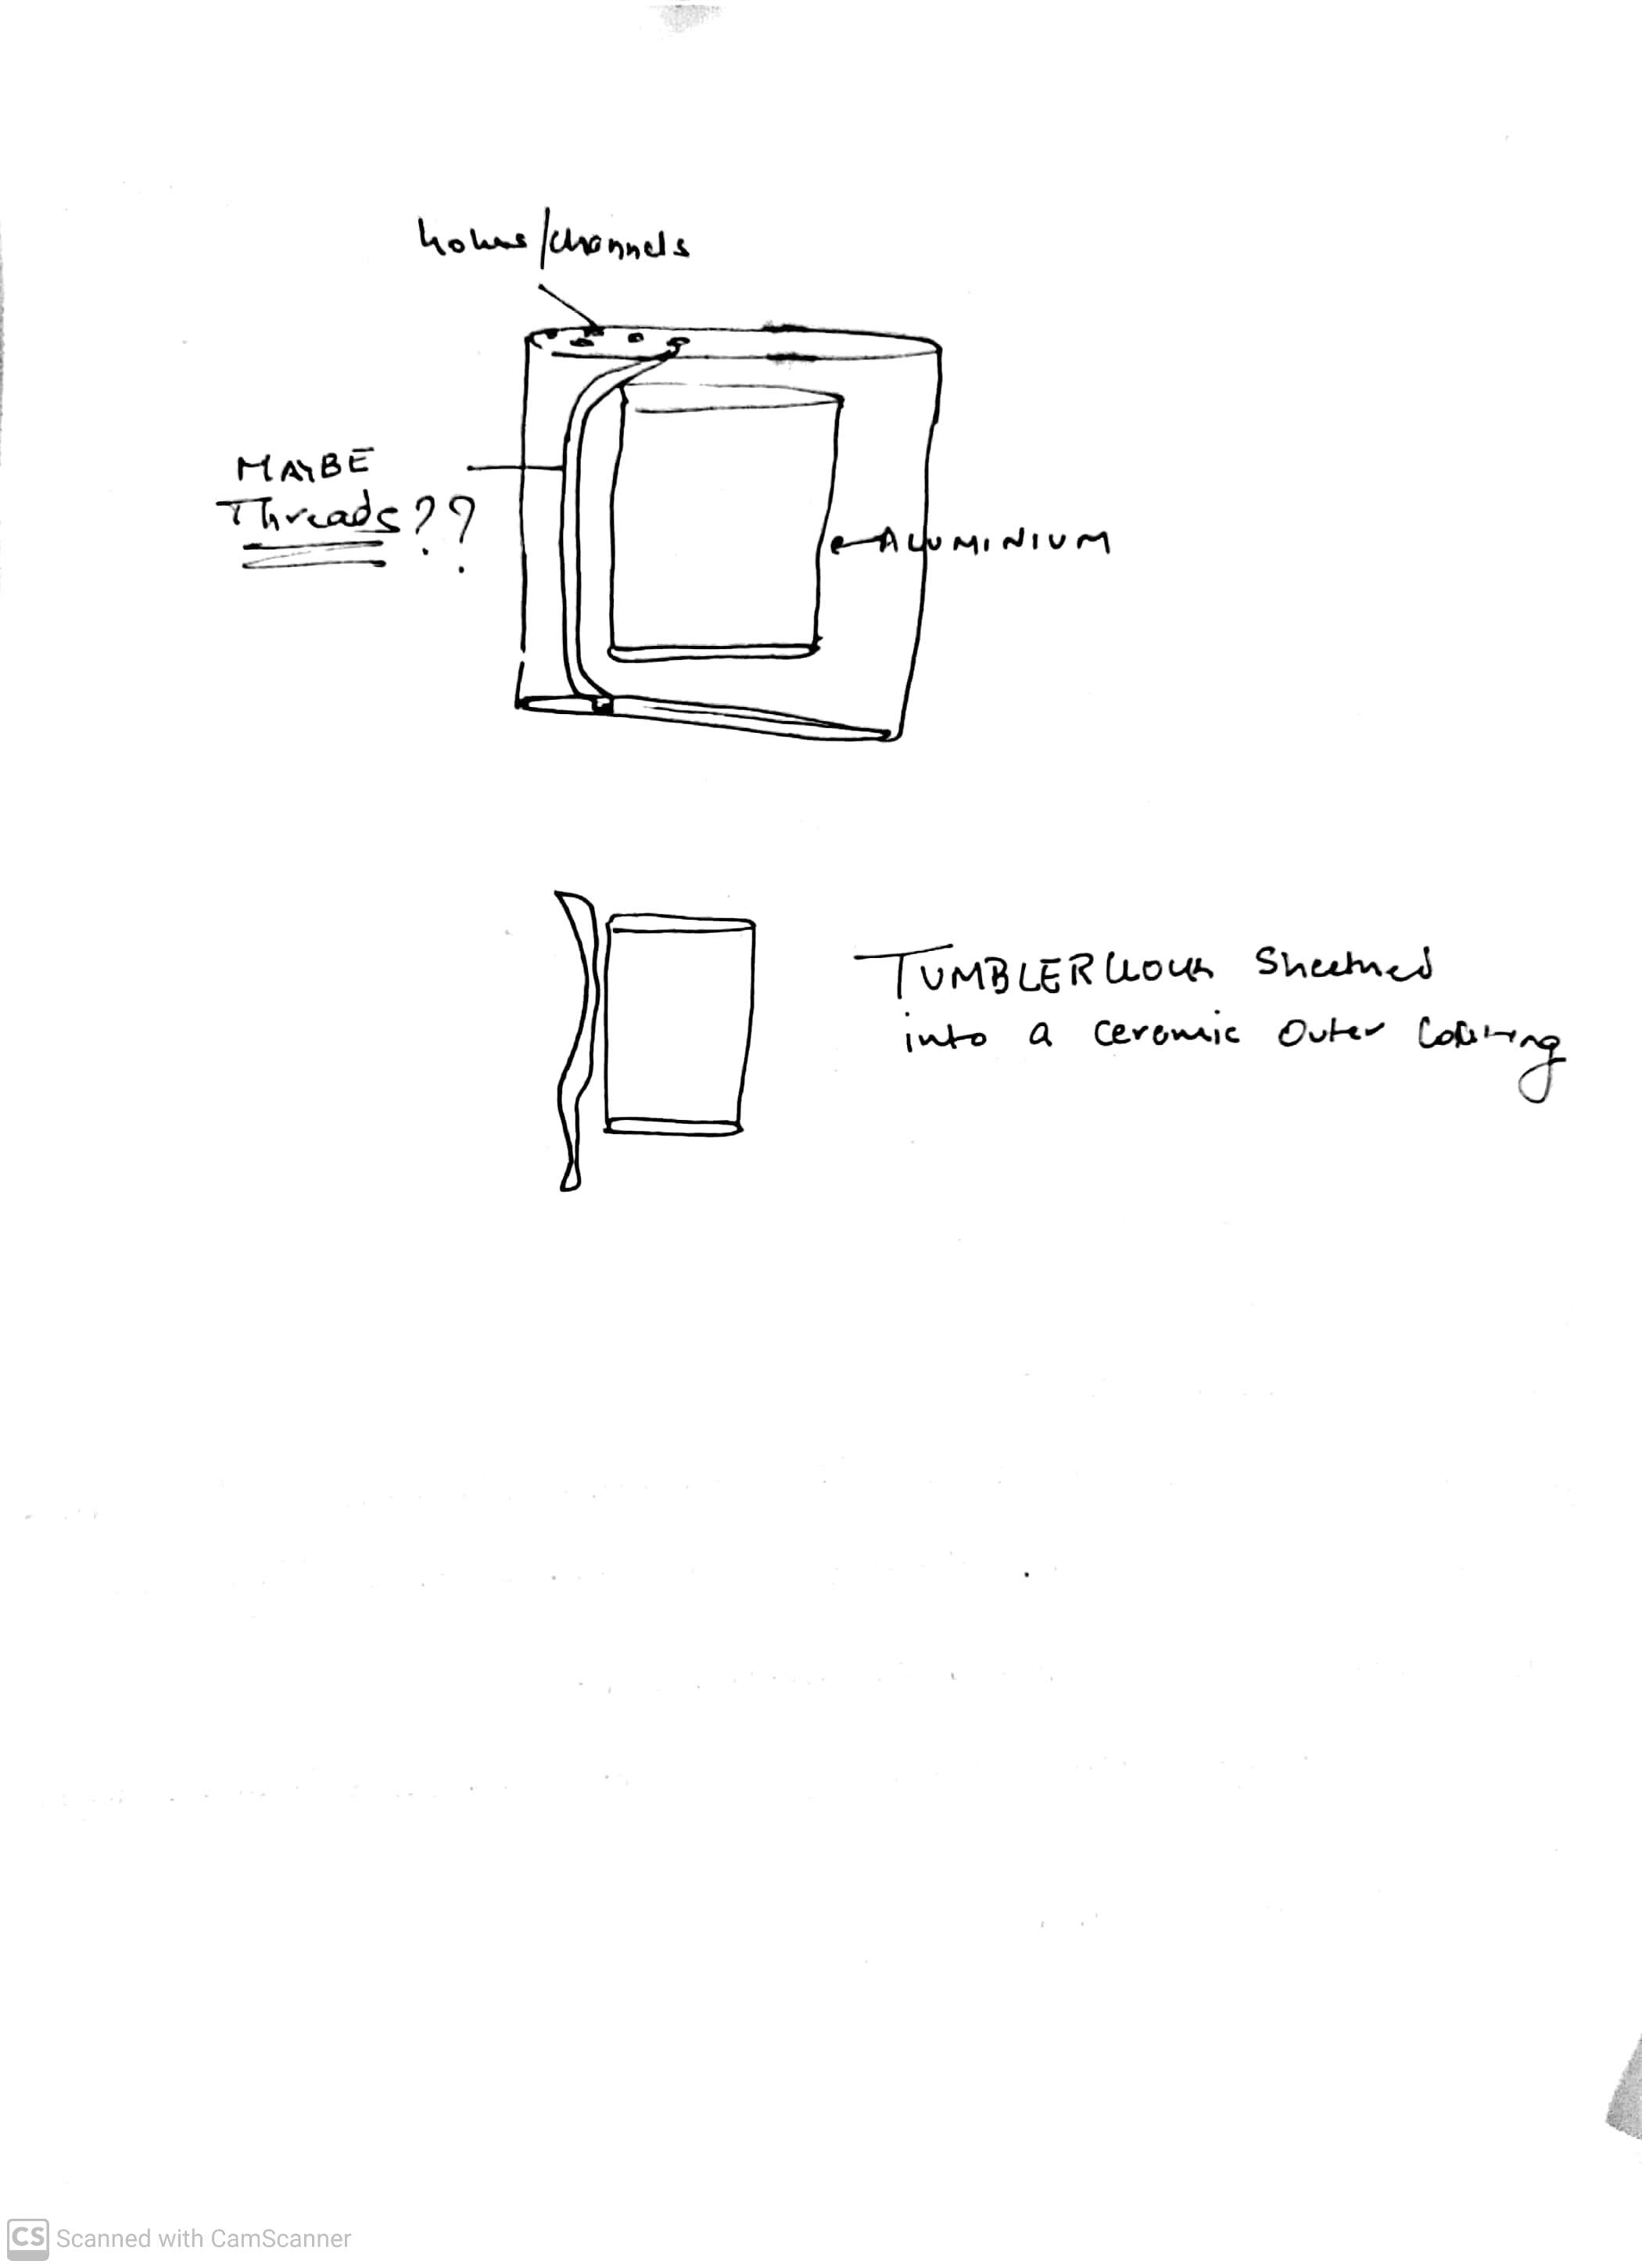 holes/channels
MAYBE
Threads??
ALUMINIUM
TUMBLER
into a ceramic outer
CS Scanned with CamScanner